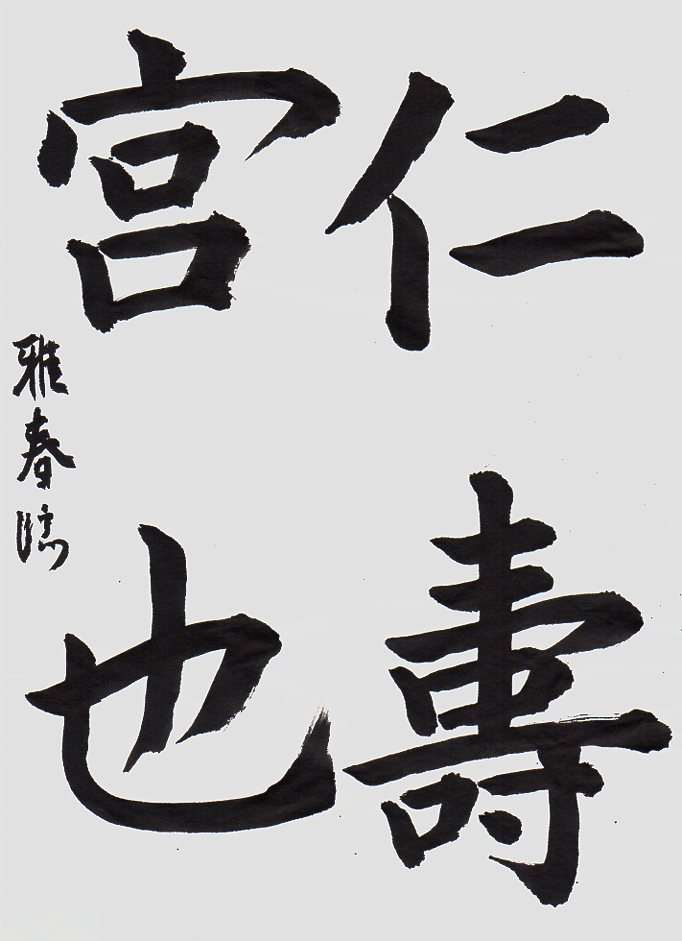 仁壽
宮也
雅春臨